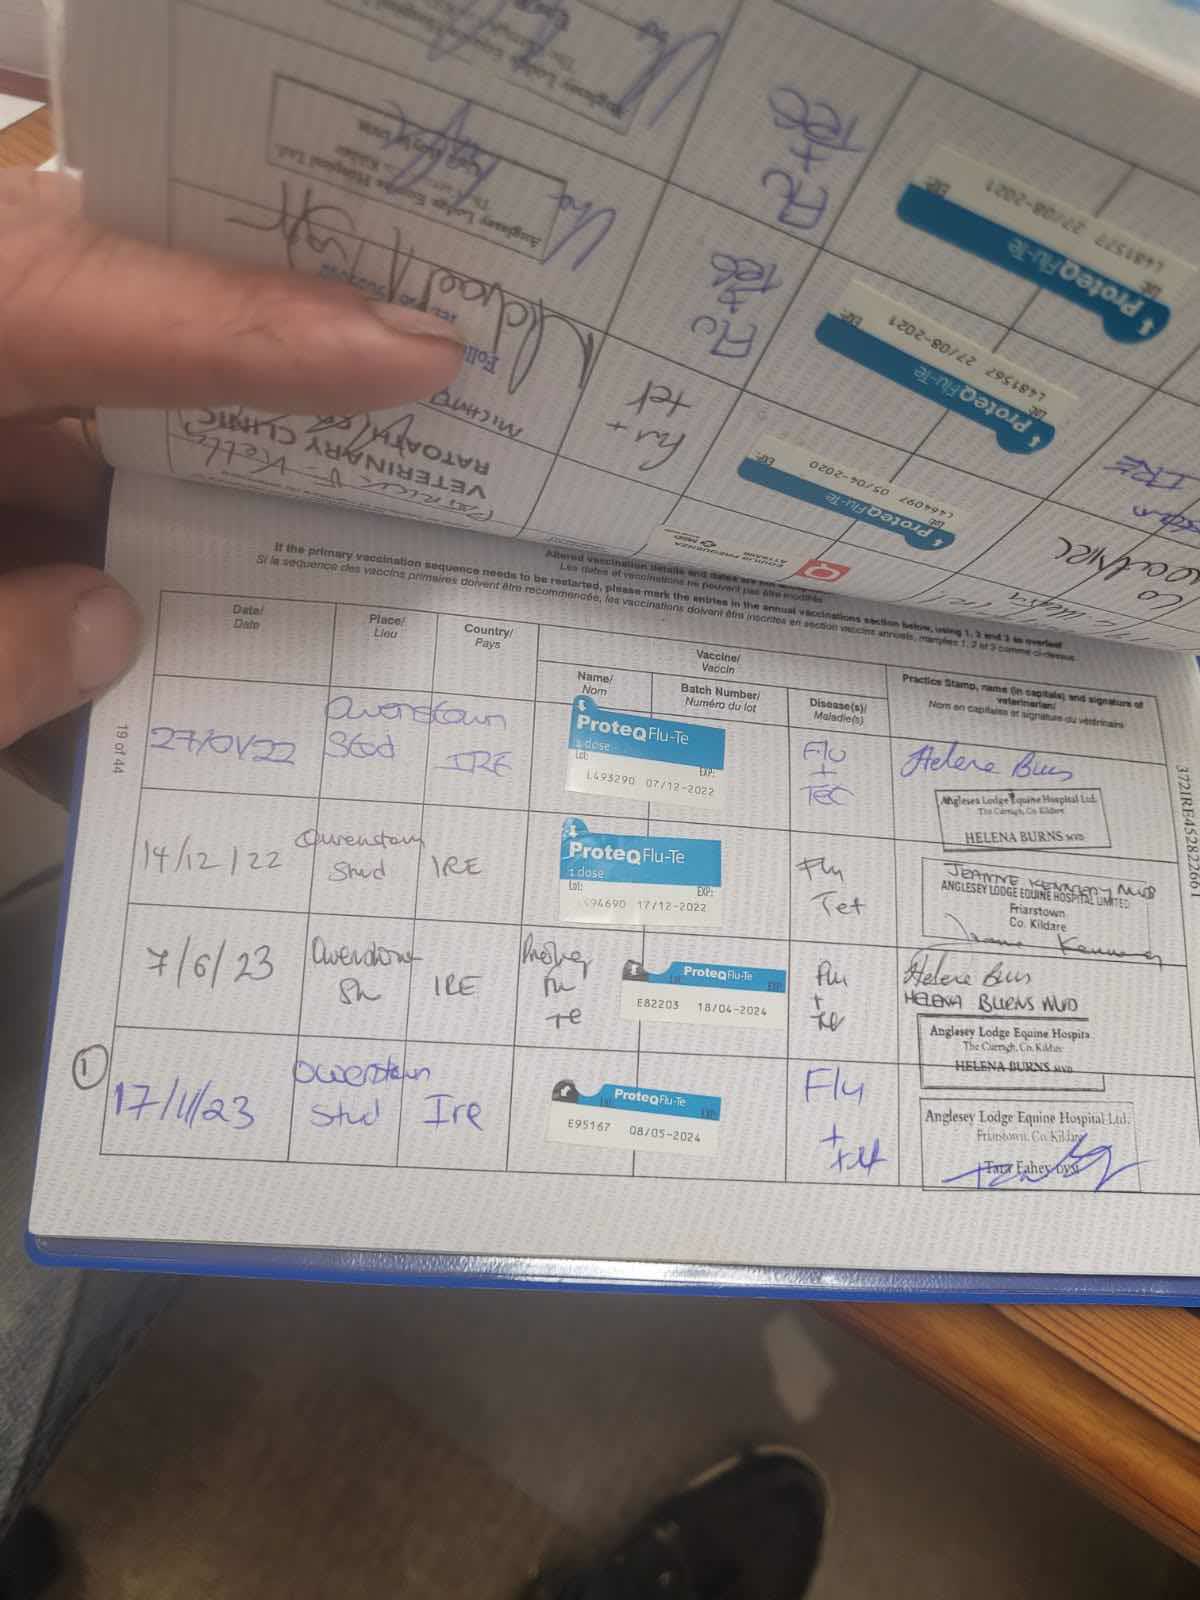 Anglesey Lodge Equine Hospital Ltd.
Flu
+
Tec
ProteqFlu-Te
Lot:
EXP:
L481577 27/08-2021
Flu
&
Tec
ProteqFlu-Te
Lot:
EXP:
L481567 27/08-2021
IRE
Flu +
tet
ProteqFlu-Te
Lot:
EXP:
L464097 05/04-2020
Co
MICHAEL
RATOATH
VETERINARY CLINIC
If the primary vaccination sequence needs to be restarted, please mark the entries in the annual vaccinations section below, using 1, 2 and 3 as overleaf
Si la séquence des vaccins primaires doivent être recommencée, les vaccinations doivent être inscrites en section vaccins annuels, marqués 1, 2 et 3 comme ci-dessus.
Altered vaccination details and dates are not
Les dates et vaccinations ne peuvent pas être modifiés
Date/
Date
Place/
Lieu
Country/
Pays
Vaccine/
Vaccin
Name/
Nom
Batch Number/
Numéro du lot
Disease(s)/
Maladie(s)
Practice Stamp, name (in capitals) and signature of
veterinarian/
Nom en capitales et signature du vétérinaire
27/01/22
Owenstown
Stud
IRE
ProteqFlu-Te
1 dose
Lot:
EXP:
L493290 07/12-2022
Flu
+
TEC
Helena Burns
Anglesey Lodge Equine Hospital Ltd.
The Curragh, Co. Kildare
HELENA BURNS MVB
14/12/22
Owenstown
Stud
IRE
ProteqFlu-Te
1 dose
Lot:
EXP:
L494690 17/12-2022
Flu
Tet
JEANNE KENNEDY MVB
ANGLESEY LODGE EQUINE HOSPITAL LIMITED
Friarstown
Co. Kildare
7/6/23
Owenstown
IRE
Proteq
Flu
Te
ProteqFlu-Te
Lot:
EXP:
E82203 18/04-2024
Flu
+
Te
Helena Burns
HELENA BURNS MVB
Anglesey Lodge Equine Hospita
The Curragh, Co. Kildare
HELENA BURNS MVB
1
17/11/23
Owenstown
Stud
Ire
ProteqFlu-Te
Lot:
EXP:
E95167 08/05-2024
Flu
+
tet
Anglesey Lodge Equine Hospital Ltd.
Friarstown, Co. Kildare
Tara Fahey
19 of 44